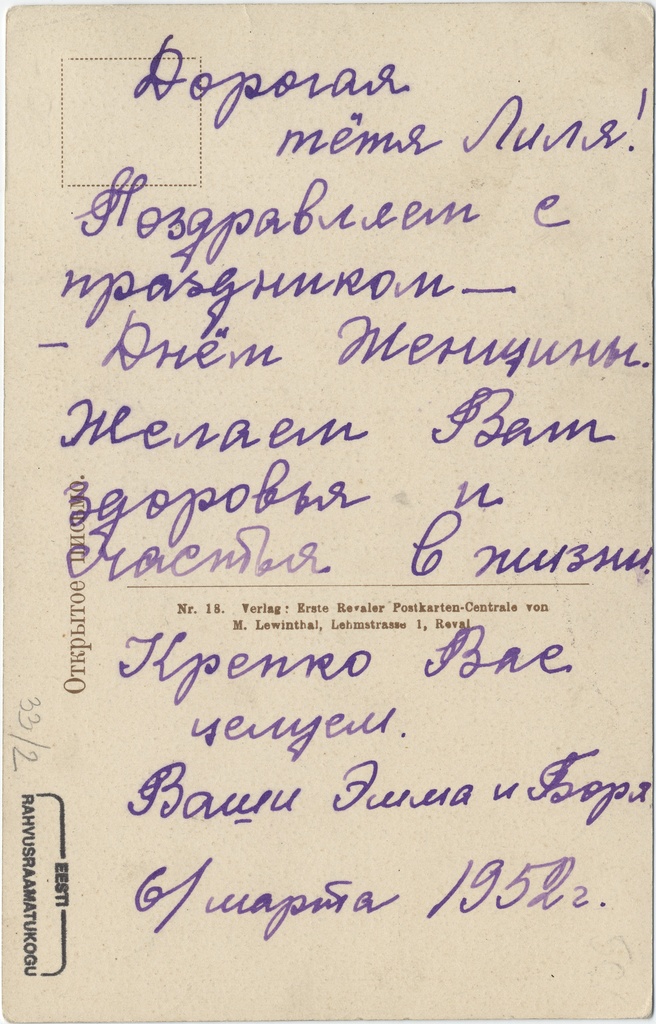 Дорогая
тётя Лиля!
Поздравляем с
праздником —
- Днём Женщины.
Желаем Вам
здоровья и
счастья в жизни.
Открытое письмо.
Nr. 18. Verlag: Erste Revaler Postkarten-Centrale von
M. Lewinthal, Lehmstrasse 1, Reval
Крепко Вас
целуем.
Ваши Эмма и Боря
6/ марта 1952 г.
33/2
EESTI
RAHVUSRAAMATUKOGU